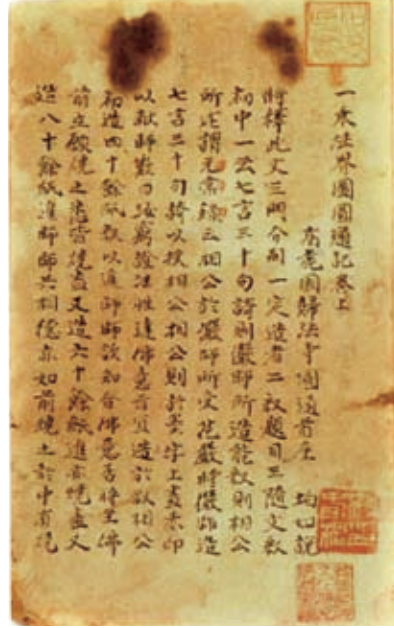 一乘法界圖圓通記卷上
高麗國歸法寺圓通首座 均如說
將釋此文三門分別一定造者二釋題目三隨文釋
初中一云七言三十句詩則儼師所造能釋則相公
所述謂元常錄云相公於儼師所受花嚴時儼師造
七言三十句詩以授相公相公則於墨字上畫赤印
以獻師歎曰汝窮證法性達佛意旨宜造於釋相公
初造四十餘紙釋以進師師欲知合佛意否將至佛
前立願燒之悉皆燒盡又造六十餘紙進亦燒盡又
造八十餘紙進師師共相 亦如前燒之於中有燒